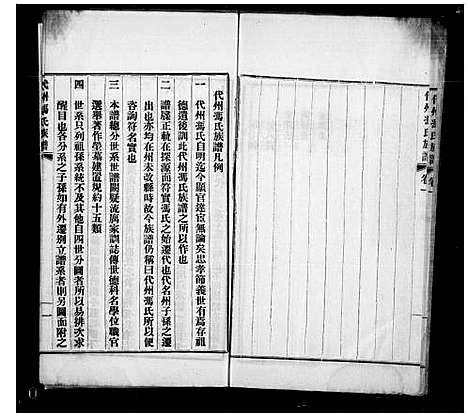 代州馮氏族譜
卷
代州馮氏族譜凡例
一 代州馮氏自明迄今顯官達宦無論矣忠孝節義世有為存祖
德遺後訓此代州馮氏族譜之所以作也
二 譜牒正軌在探源面符實馮氏之始遷代也代名州子孫之遷
出也亦均在州未改縣時故今族譜仍稱曰代州馮氏所以便
咨詢符名實也
三 本譜總分世系世譜闕疑流寓家訓誌傳世德科名學位職官
選舉著作塋墓建置規約十五類
四 世系只列祖系統不及其他自四世分圖者所以易排次求
醒目也各分系之子孫如有外遷別立譜系者則另圖面附之
代州馮氏族譜
一